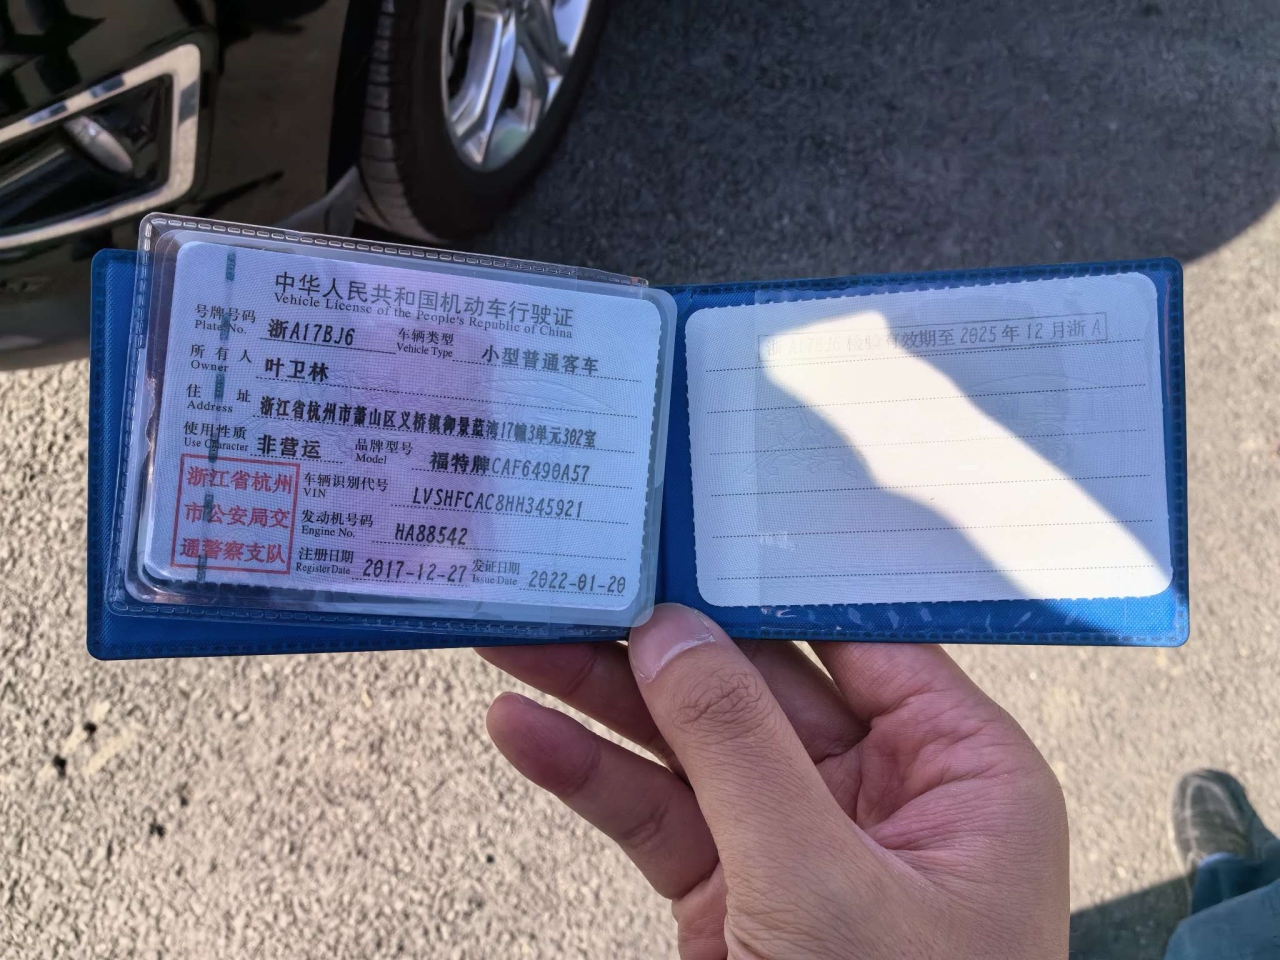 中华人民共和国机动车行驶证
Vehicle License of the People's Republic of China
号牌号码 浙A17BJ6 车辆类型 小型普通客车
Plate No. Vehicle Type
所有人 叶卫林
Owner
住址 浙江省杭州市萧山区义桥镇御景蓝湾17幢3单元302室
Address
使用性质 非营运 品牌型号 福特牌CAF6490A57
Use Character Model
浙江省杭州
市公安局交
通警察支队
车辆识别代号 LVSHFCAC8HH345921
VIN
发动机号码 HA88542
Engine No.
注册日期 2017-12-27 发证日期 2022-01-20
Register Date Issue Date
检验有效期至 2025 年 12 月浙 A